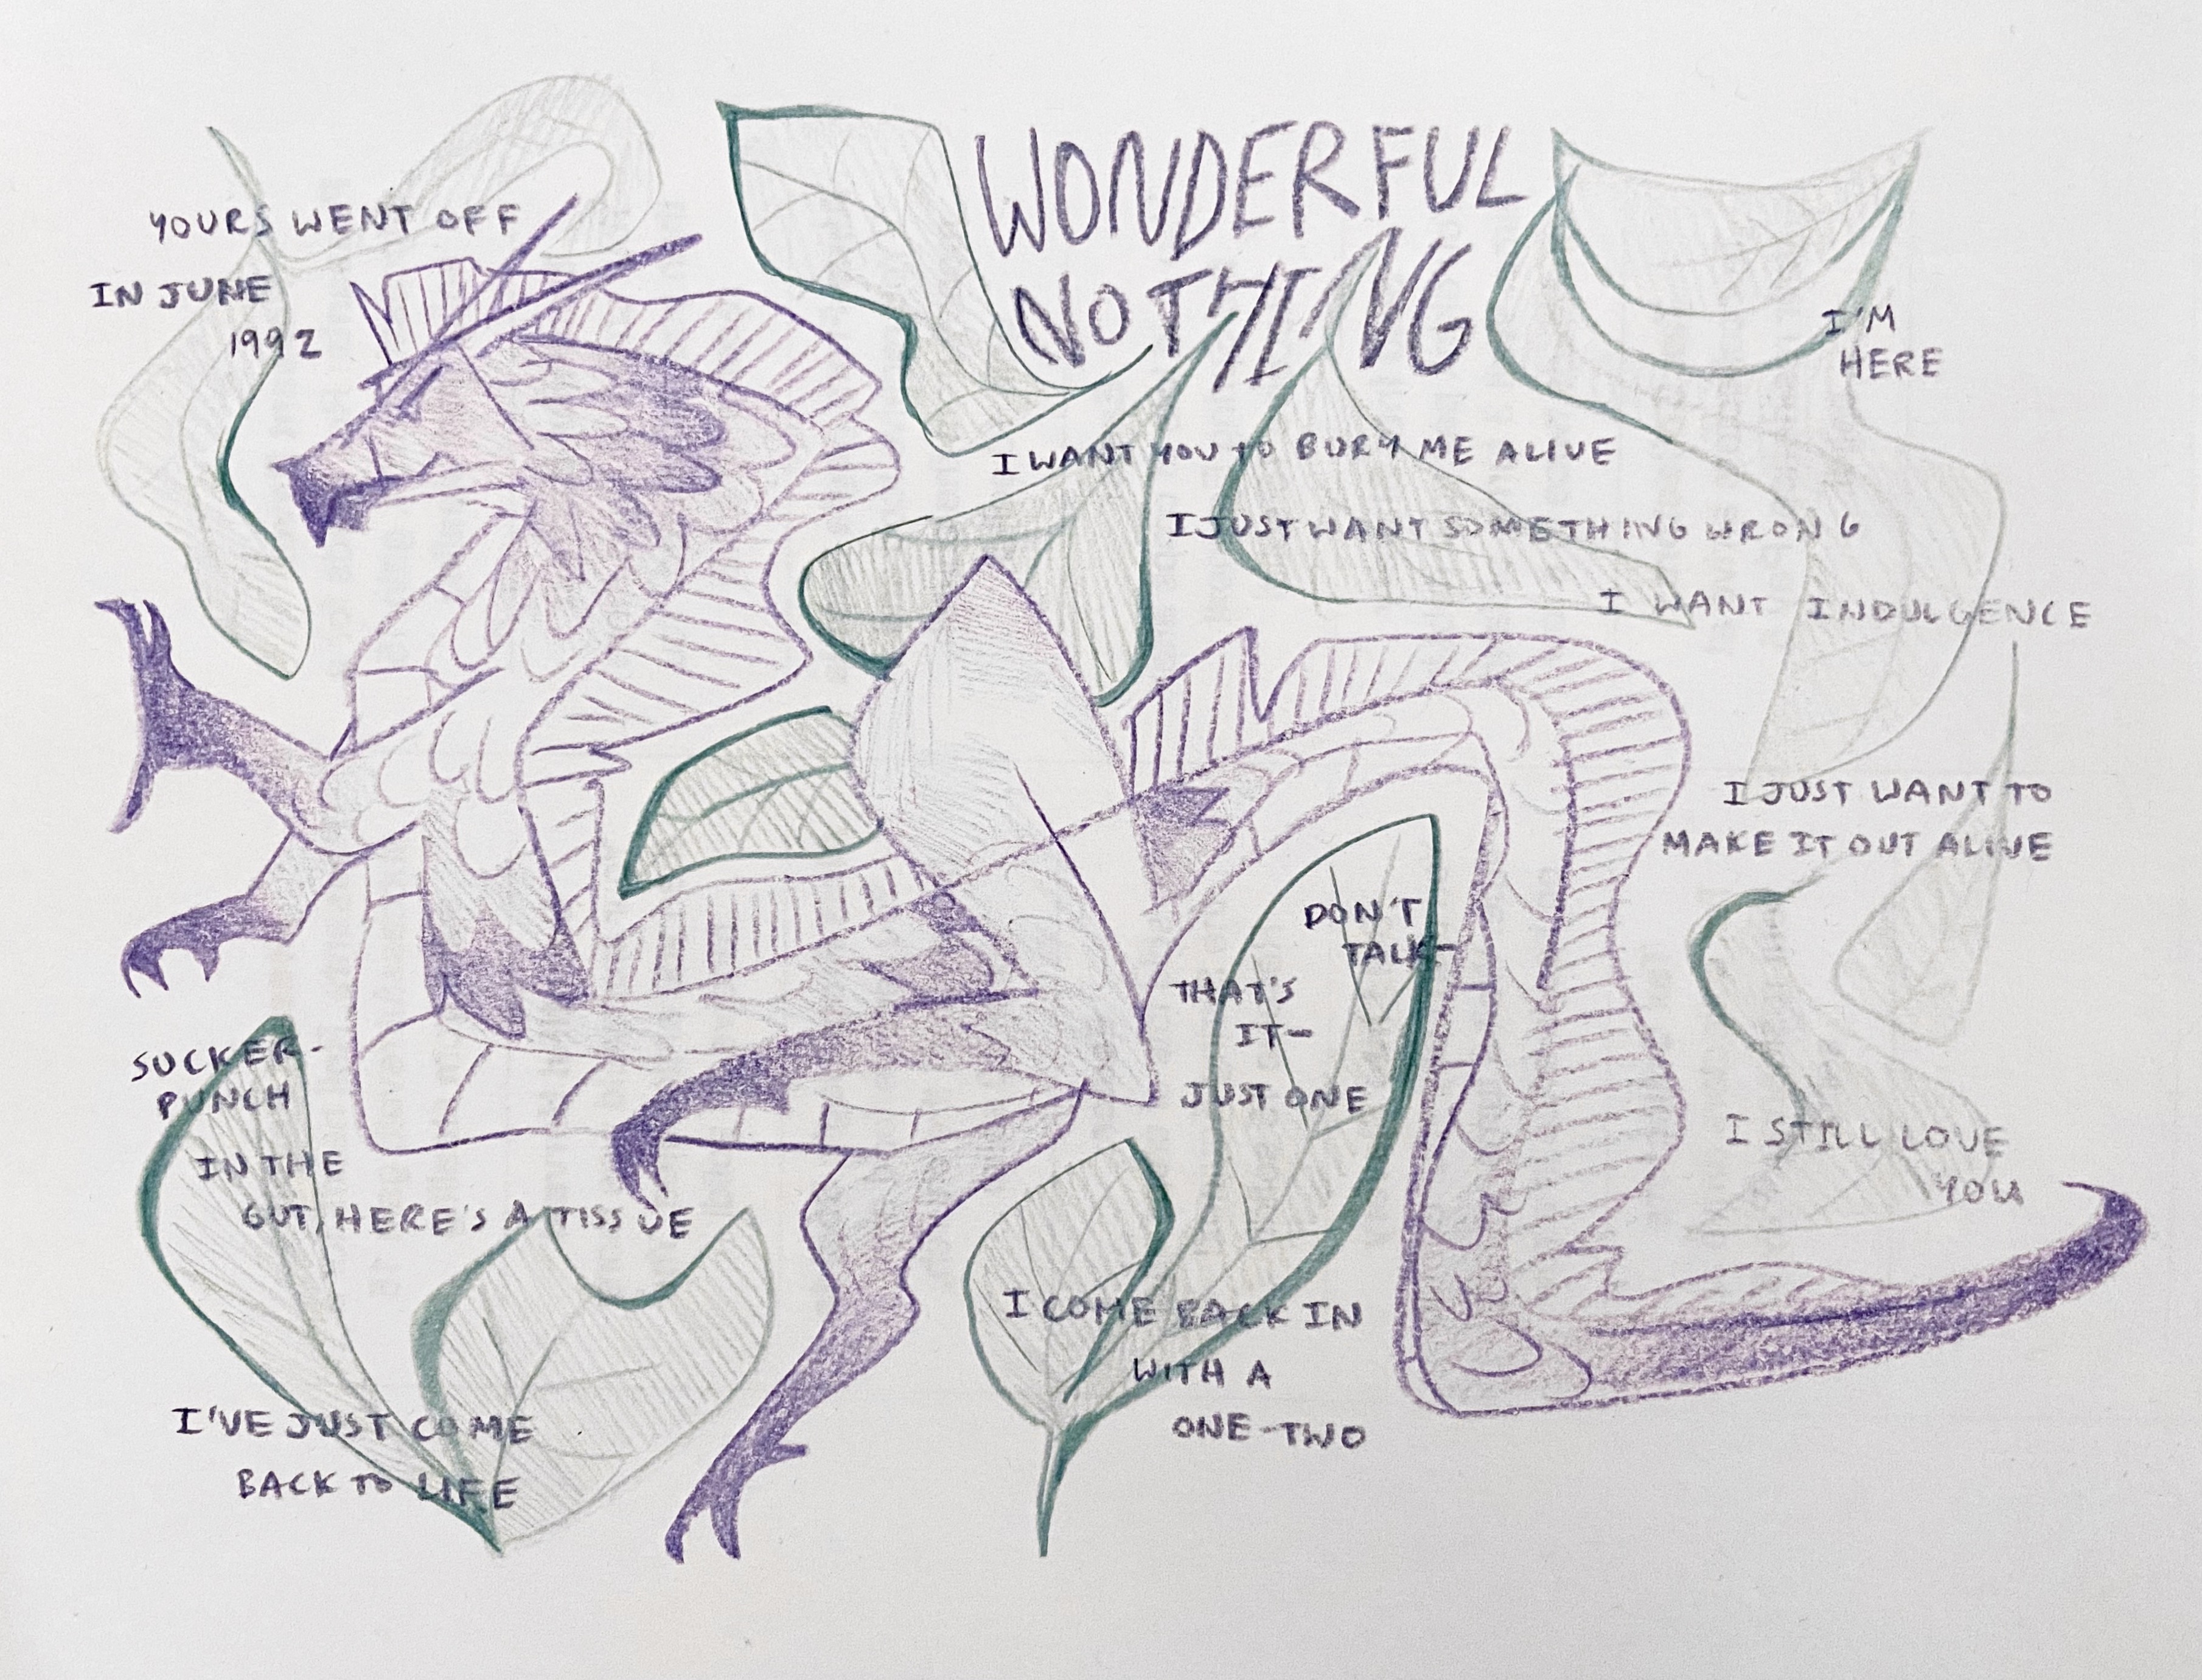 WONDERFUL
NOTHING
YOURS WENT OFF
IN JUNE
1992
I'M
HERE
I WANT YOU TO BURY ME ALIVE
I JUST WANT SOMETHING WRONG
I WANT INDULGENCE
I JUST WANT TO
MAKE IT OUT ALIVE
DON'T
TALK-
THAT'S
IT-
JUST ONE
SUCKER-
PUNCH
IN THE
GUT, HERE'S A TISSUE
I STILL LOVE
YOU
I COME BACK IN
WITH A
ONE-TWO
I'VE JUST COME
BACK TO LIFE